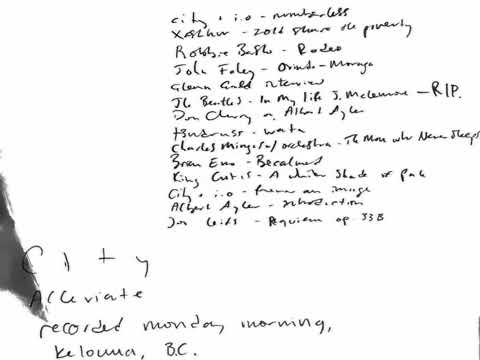 city + i.o - numberless
Xasthur - 2011 the poverty
Robbie Basho - Rodeo
John Fahey - Orinda-Moraga
Glenn Gould interview
The Beatles - In My Life J. McLemore — RIP.
Don Cherry on Albert Ayler
- wata
Charles Mingus/orchestra - The Man who Never Sleeps
Brian Eno - Becalmed
King Curtis - A whiter Shade of Pale
City + i.o - frame an image
Albert Ayler -
Jon Leifs - Requiem op. 33B
City
Alleviate
recorded monday morning,
Kelowna, B.C.